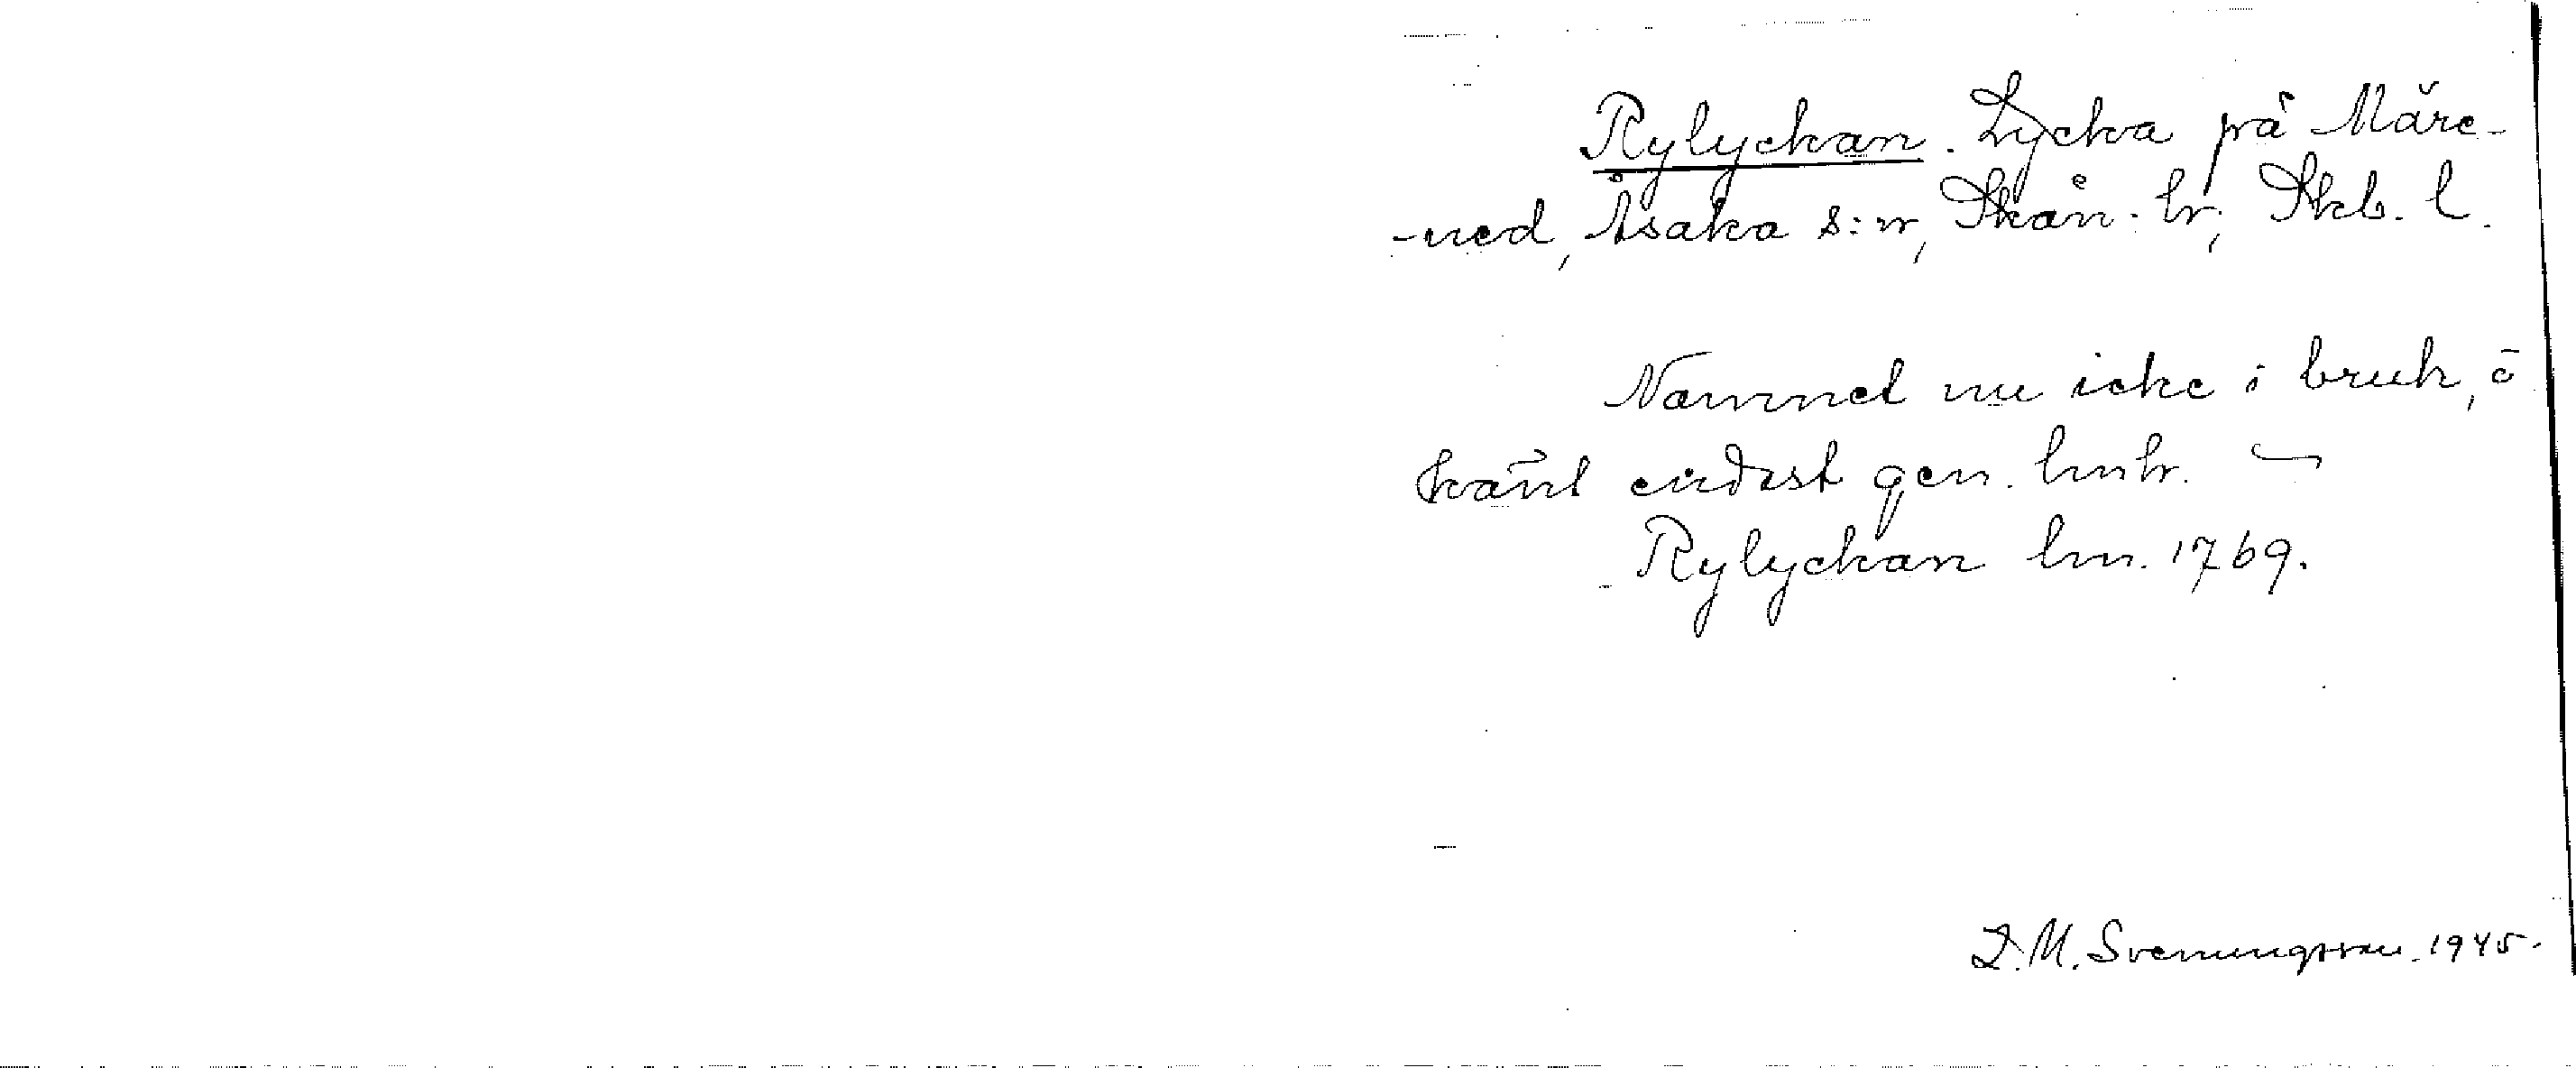 Rylyckan. Lycka på Märe-
-ned, Åsaka s:n, Skån. hr, Skb. l.
Namnet nu icke i bruk, o
känt endast gen. lmh.
Rylyckan lm. 1769.
D. M. Svenungsson. 1945.